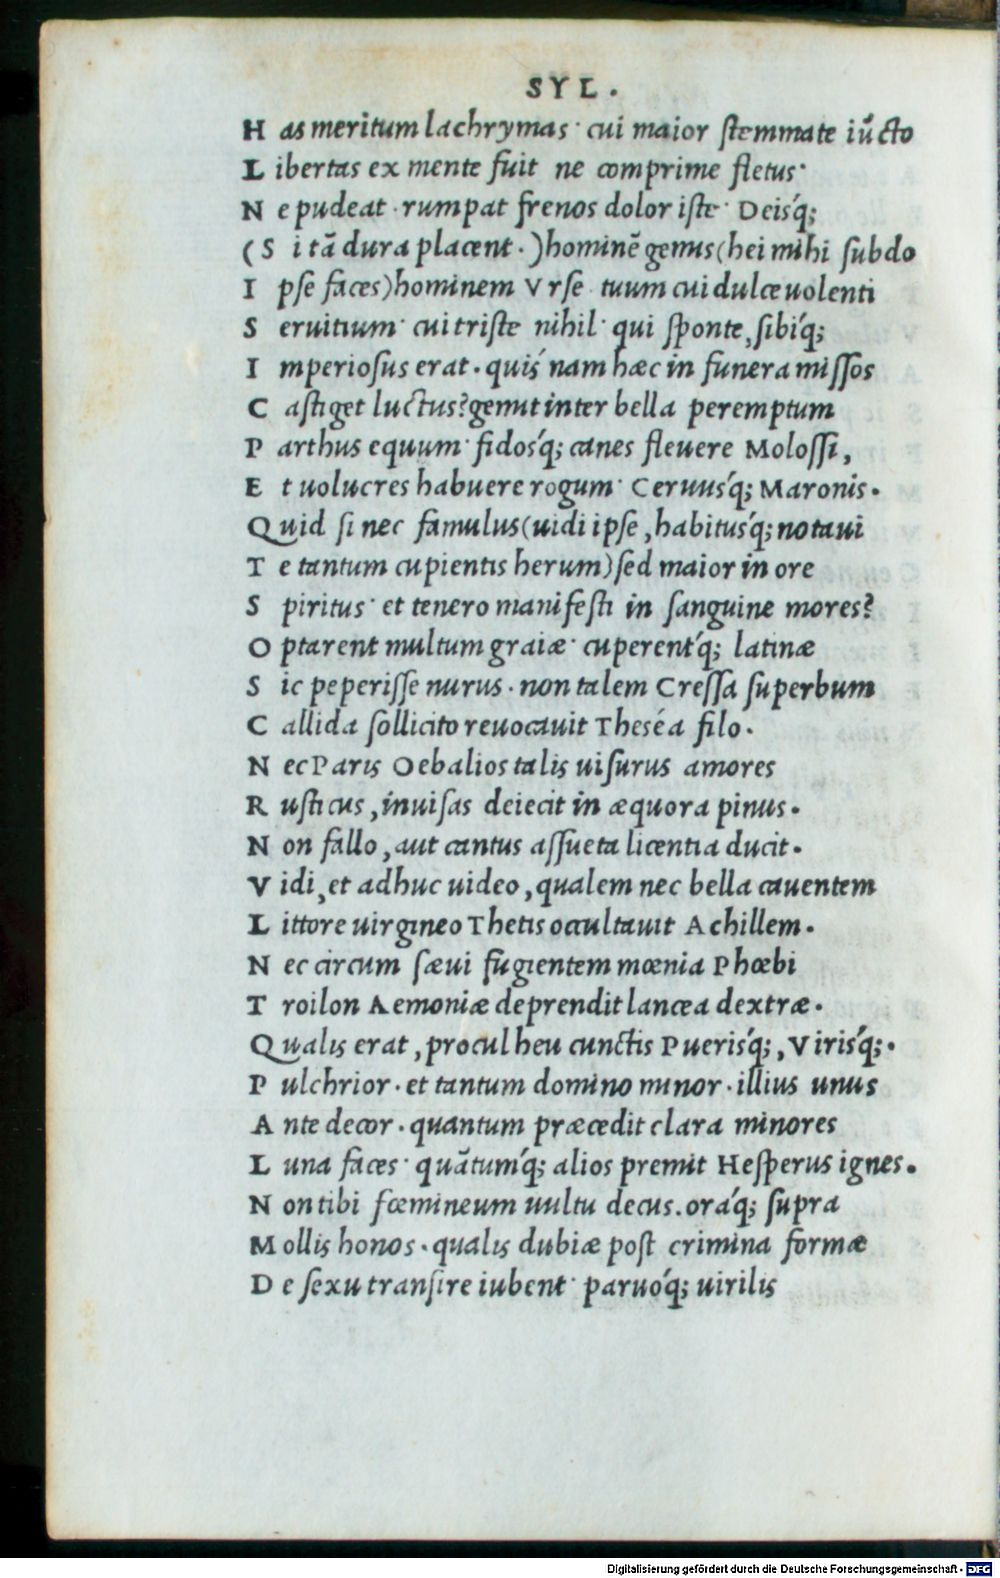 SYL.
H as meritum lachrymas· cui maior stemmate iũcto
L ibertas ex mente fuit ne comprime fletus·
N e pudeat·rumpat frenos dolor iste· Deisq́;
(S i tã dura placent.)hominẽ gemis(hei mihi subdo
I pse faces)hominem Vrse tuum cui dulce uolenti
S eruitium· cui triste nihil· qui sponte, sibiq́;
I mperiosus erat. quis nam hæc in funera missos
C astiget luctus?gemit inter bella peremptum
P arthus equum· fidosq́; canes fleuere Molossi,
E t uolucres habuere rogum· Ceruusq́; Maronis.
Q uid si nec famulus(uidi ipse, habitusq́; notaui
T e tantum cupientis herum)sed maior in ore
S piritus· et tenero manifesti in sanguine mores?
O ptarent multum graiæ· cuperentq́; latinæ
S ic peperisse nurus. non talem Cressa superbum
C allida sollicito reuocauit Theséa filo.
N ec Paris Oebalios talis uisurus amores
R usticus, inuisas deiecit in æquora pinus.
N on fallo, aut cantus assueta licentia ducit.
V idi, et adhuc uideo, qualem nec bella cauentem
L ittore uirgineo Thetis occultauit Achillem.
N ec circum sæui fugientem mœnia Phœbi
T roilon Aemoniæ deprendit lancea dextræ.
Q ualis erat, procul heu cunctis Puerisq́;, Virisq́;.
P ulchrior. et tantum domino minor. illius unus
A nte decor. quantum præcedit clara minores
L una faces· quãtumq́; alios premit Hesperus ignes.
N on tibi fœmineum uultu decus. oraq́; supra
M ollis honos. qualis dubiæ post crimina formæ
D e sexu transire iubent· paruoq́; uirilis
Digitalisierung gefördert durch die Deutsche Forschungsgemeinschaft - DFG